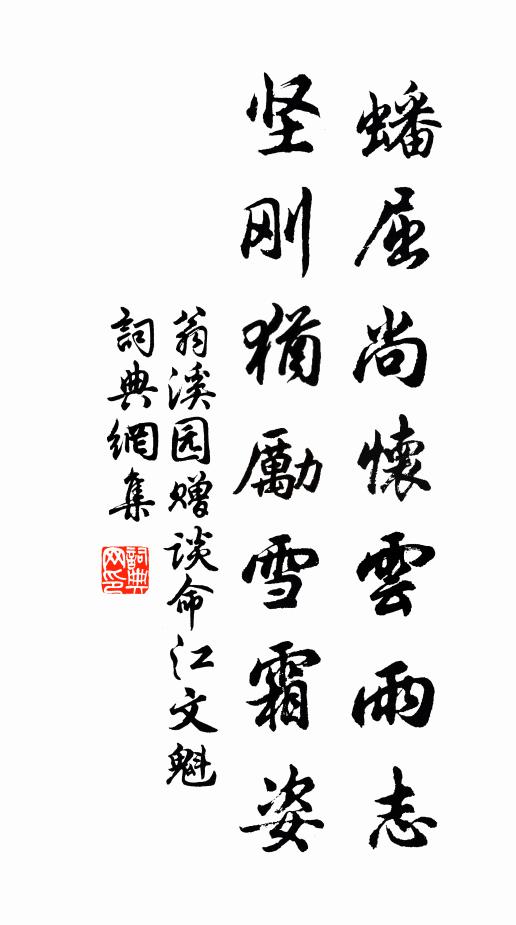 蟠屈尚懷雲雨志
坚刚猶勵雪霜姿
翁溪园赠谈命江文魁
詞典網集
詞典网印